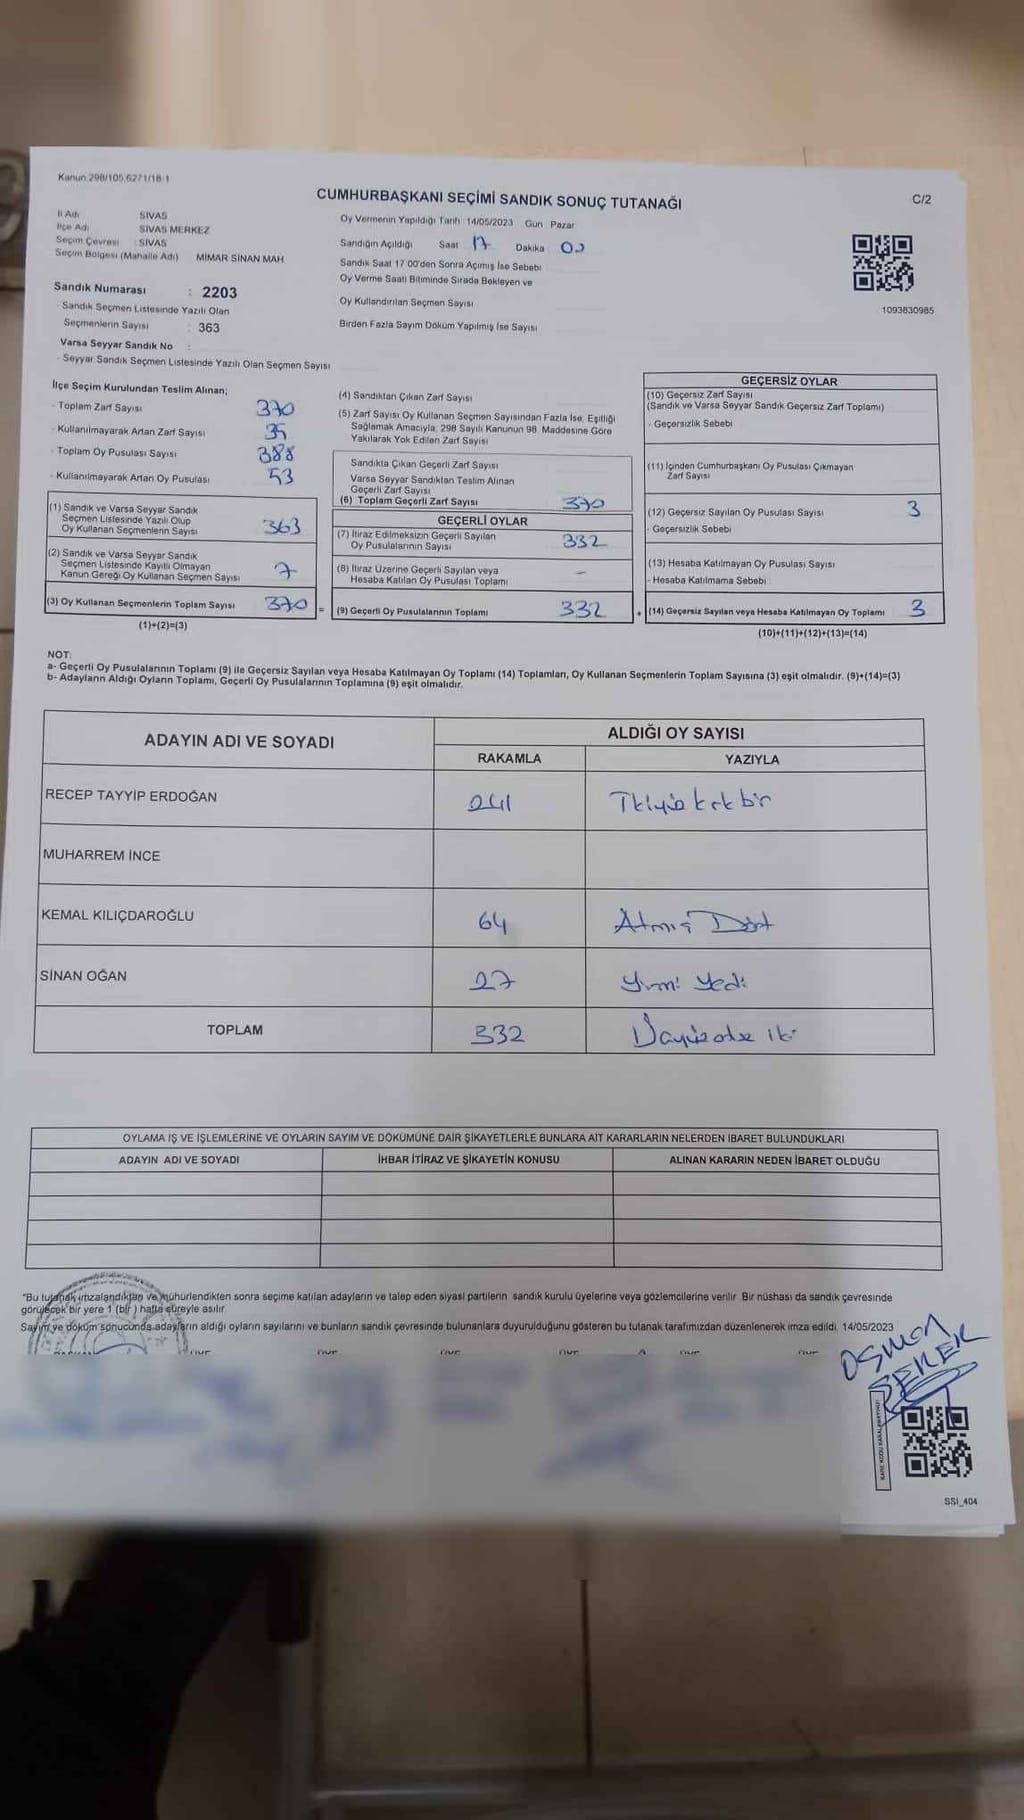 Kanun:298/105,6271/18-1
CUMHURBAŞKANI SEÇİMİ SANDIK SONUÇ TUTANAĞI
C/2
İl Adı SİVAS
İlçe Adı SİVAS MERKEZ
Seçim Çevresi : SİVAS
Seçim Bölgesi (Mahalle Adı) MİMAR SİNAN MAH
Sandık Numarası : 2203
- Sandık Seçmen Listesinde Yazılı Olan
Seçmenlerin Sayısı : 363
Varsa Seyyar Sandık No :
- Seyyar Sandık Seçmen Listesinde Yazılı Olan Seçmen Sayısı
Oy Vermenin Yapıldığı Tarih 14/05/2023 Gün Pazar
Sandığın Açıldığı Saat 17 Dakika 00
Sandık Saat 17:00'den Sonra Açımış İse Sebebi
Oy Verme Saati Bitiminde Sırada Bekleyen ve
Oy Kullandırılan Seçmen Sayısı
Birden Fazla Sayım Döküm Yapılmış İse Sayısı
1093830985
İlçe Seçim Kurulundan Teslim Alınan;
- Toplam Zarf Sayısı 370
- Kullanılmayarak Artan Zarf Sayısı 35
- Toplam Oy Pusulası Sayısı 388
- Kullanılmayarak Artan Oy Pusulası 53
(1) Sandık ve Varsa Seyyar Sandık
Seçmen Listesinde Yazılı Olup
Oy Kullanan Seçmenlerin Sayısı 363
(2) Sandık ve Varsa Seyyar Sandık
Seçmen Listesinde Kayıtlı Olmayan
Kanun Gereği Oy Kullanan Seçmen Sayısı 7
(3) Oy Kullanan Seçmenlerin Toplam Sayısı 370 =
(1)+(2)=(3)
(4) Sandıktan Çıkan Zarf Sayısı
(5) Zarf Sayısı Oy Kullanan Seçmen Sayısından Fazla İse, Eşitliği
Sağlamak Amacıyla, 298 Sayılı Kanunun 98. Maddesine Göre
Yakılarak Yok Edilen Zarf Sayısı
Sandıkta Çıkan Geçerli Zarf Sayısı
Varsa Seyyar Sandıktan Teslim Alınan
Geçerli Zarf Sayısı
(6) Toplam Geçerli Zarf Sayısı 370
GEÇERLİ OYLAR
(7) İtiraz Edilmeksizin Geçerli Sayılan
Oy Pusulalarının Sayısı 332
(8) İtiraz Üzerine Geçerli Sayılan veya
Hesaba Katılan Oy Pusulası Toplamı -
(9) Geçerli Oy Pusulalarının Toplamı 332 +
GEÇERSİZ OYLAR
(10) Geçersiz Zarf Sayısı
(Sandık ve Varsa Seyyar Sandık Geçersiz Zarf Toplamı)
- Geçersizlik Sebebi
(11) İçinden Cumhurbaşkanı Oy Pusulası Çıkmayan
Zarf Sayısı
(12) Geçersiz Sayılan Oy Pusulası Sayısı 3
- Geçersizlik Sebebi
(13) Hesaba Katılmayan Oy Pusulası Sayısı
- Hesaba Katılmama Sebebi
(14) Geçersiz Sayılan veya Hesaba Katılmayan Oy Toplamı 3
(10)+(11)+(12)+(13)=(14)
NOT:
a- Geçerli Oy Pusulalarının Toplamı (9) ile Geçersiz Sayılan veya Hesaba Katılmayan Oy Toplamı (14) Toplamları, Oy Kullanan Seçmenlerin Toplam Sayısına (3) eşit olmalıdır. (9)+(14)=(3)
b- Adayların Aldığı Oyların Toplamı, Geçerli Oy Pusulalarının Toplamına (9) eşit olmalıdır.
ADAYIN ADI VE SOYADI ALDIĞI OY SAYISI
RAKAMLA YAZIYLA
RECEP TAYYİP ERDOĞAN 241 İkiyüz kırk bir
MUHARREM İNCE
KEMAL KILIÇDAROĞLU 64 Atmış Dört
SİNAN OĞAN 27 Yirmi Yedi
TOPLAM 332 Üçyüzotuz iki
OYLAMA İŞ VE İŞLEMLERİNE VE OYLARIN SAYIM VE DÖKÜMÜNE DAİR ŞİKAYETLERLE BUNLARA AİT KARARLARIN NELERDEN İBARET BULUNDUKLARI
ADAYIN ADI VE SOYADI İHBAR İTİRAZ VE ŞİKAYETİN KONUSU ALINAN KARARIN NEDEN İBARET OLDUĞU
"Bu tutanak imzalandıktan ve mühürlendikten sonra seçime katılan adayların ve talep eden siyasi partilerin sandık kurulu üyelerine veya gözlemcilerine verilir. Bir nüshası da sandık çevresinde
görülecek bir yere 1 (bir) hafta süreyle asılır.
Sayım ve döküm sonucunda adayların aldığı oyların sayılarını ve bunların sandık çevresinde bulunanlara duyurulduğunu gösteren bu tutanak tarafımızdan düzenlenerek imza edildi. 14/05/2023
OSMAN
ŞEKER
KARE KODU KARALAMAYINIZ!
SSI_404